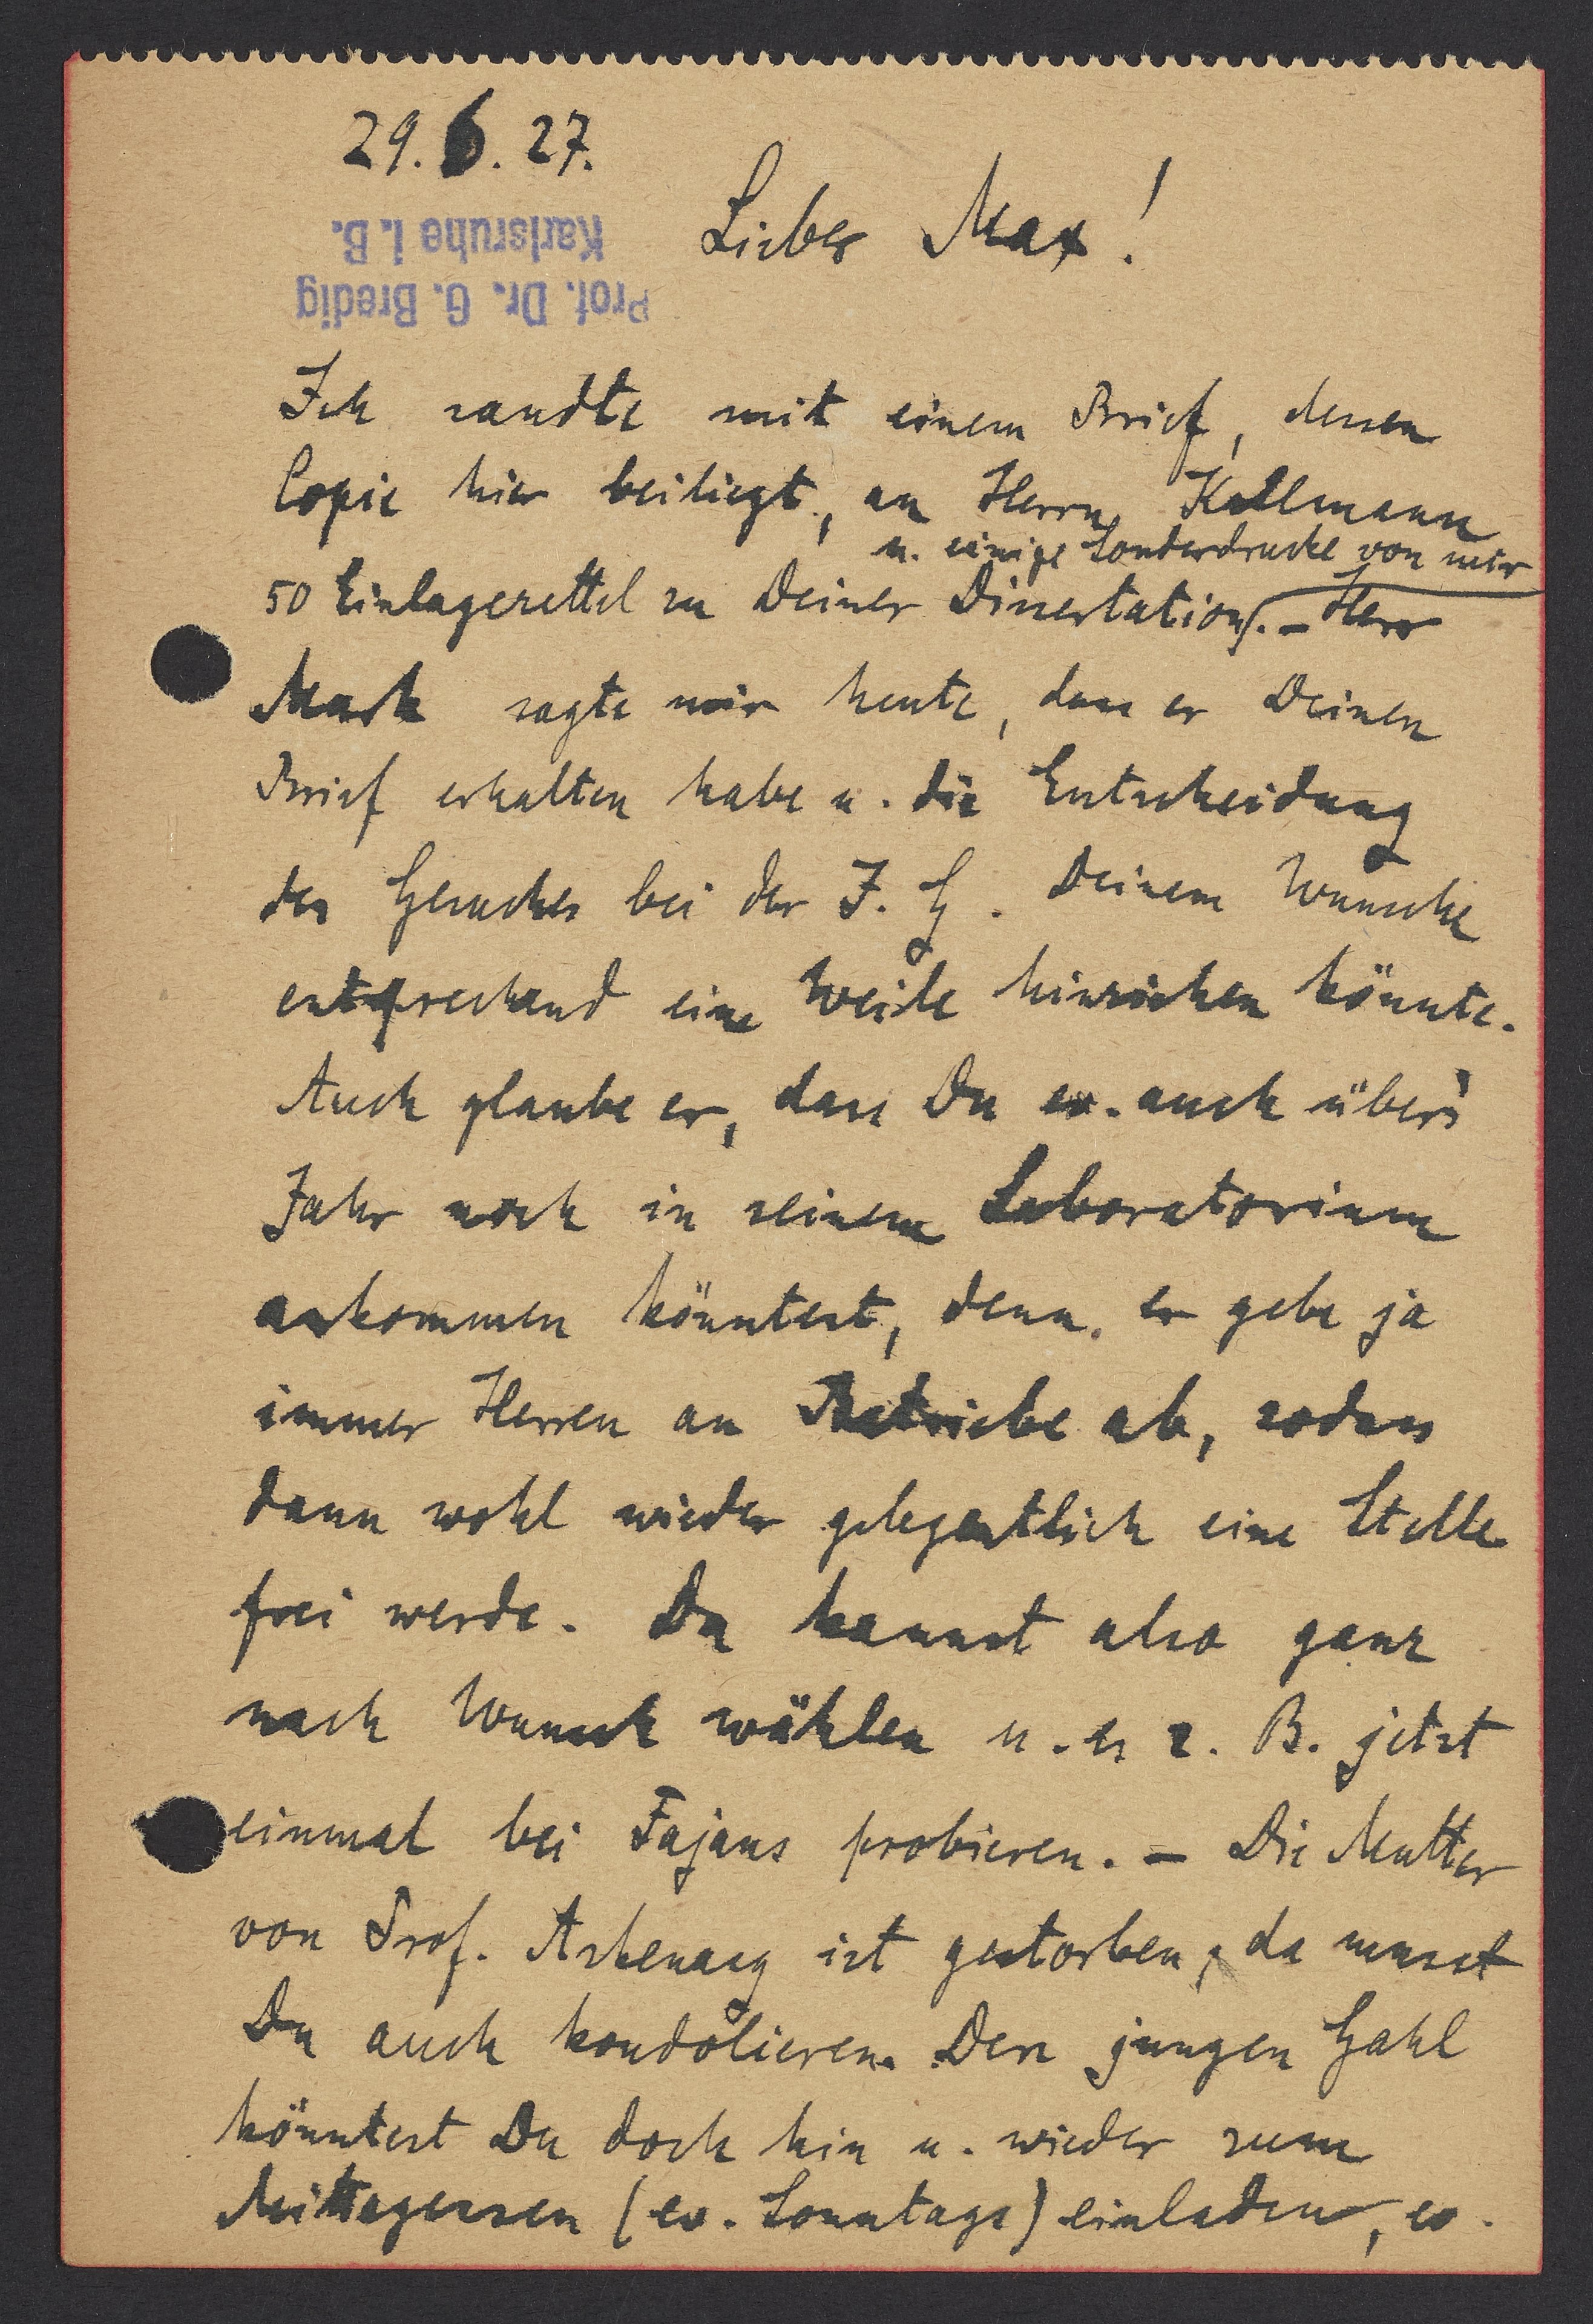 29. 6. 27.
Prof. Dr. G. Bredig
Karlsruhe i. B.
Lieber Max!
Ich sandte mit einem Brief, dessen
Copie hier beiliegt, an Herrn Kallmann
u. einige Sonderdrucke von mir
50 Einlagezettel zu Deiner Dissertation. – Herr
Mark sagte mir heute, dass er Deinen
Brief erhalten habe u. die Entscheidung
des Gesuches bei der I. G. Deinem Wunsche
entsprechend eine Weile hinziehen könnte.
Auch glaube er, dass Du ev. auch über's
Jahr noch in seinem Laboratorium
ankommen könntest, denn er gebe ja
immer Herren an Betriebe ab, sodass
dann wohl wieder gelegentlich eine Stelle
frei werde. Du kannst also ganz
nach Wunsch wählen u. es z. B. jetzt
einmal bei Fajans probieren. – Die Mutter
von Prof. Askenasy ist gestorben, da musst
Du auch kondolieren. Den jungen Gahl
könntest Du doch hin u. wieder zum
Mittagessen (ev. Sonntags) einladen, ev.